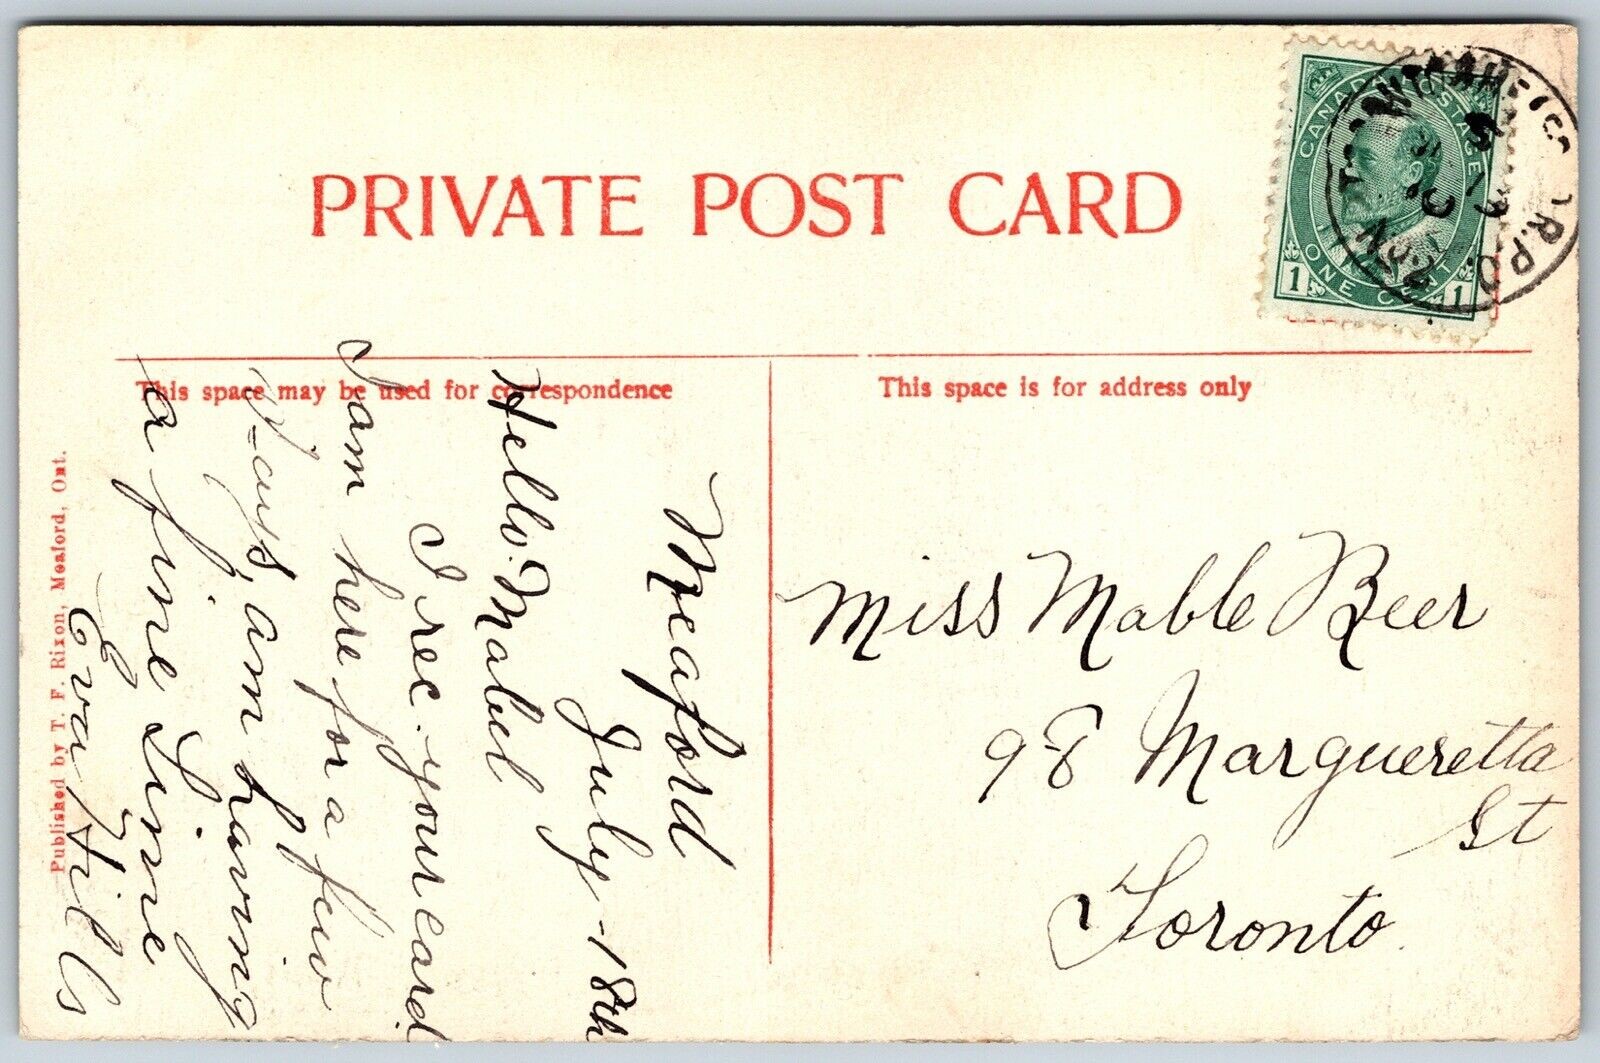 PRIVATE POST CARD
CANADA POSTAGE
1 ONE CENT 1
R.P.O.
No. 2
This space may be used for correspondence
This space is for address only
Meaford
July - 18th
Hello. Mabel
I rec. your card
I am here for a few
D-ays, am having
a fine time
Eva Hills
Miss Mable Beer
98 Margueretta
St
Toronto.
Published by T. F. Rixon, Meaford, Ont.